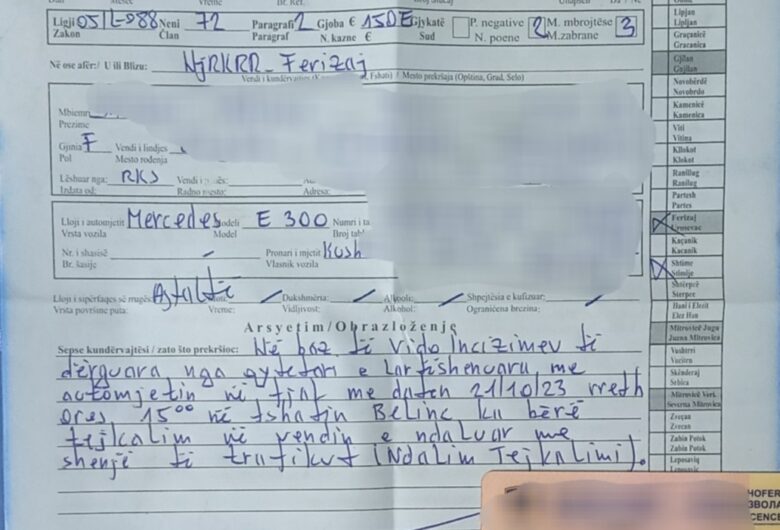 Ligji 05/L-088 Neni 72 Paragrafi 2 Gjoba € 150 € Gjykatë P. negative 2 M. mbrojtëse 3
Zakon Član Paragraf N. kazne € Sud N. poene M.zabrane
Në ose afër:/ U ili Blizu: NjRKRR_ Ferizaj
Fshati) / Mesto prekršaja (Opština, Grad, Selo)
Prezime
Gjinia F Vendi i lindjes
Pol Mesto rođenja
Lëshuar nga: RKS
Izdata od: Radno mesto: Adresa:
Lloji i automjetit Mercedes Modeli E 300
Vrsta vozila Model
Nr. i shasisë Pronari i mjetit Kush
Br. šasije Vlasnik vozila
Lloji i sipërfaqes së rrugës Asfaltë Dukshmëria: Alkooli: Shpejtësia e kufizuar:
Vrsta površine puta: Vreme: Vidljivost: Alkohol: Ograničena brzina:
Arsyetim/Obrazloženje
Sepse kundërvajtësi / zato što prekršioc: Në baz të vido Incizimev të
dërguara nga qytetari e Lartëshenuaru me
automjetin në fjal me daten 21/10/23 rreth
ores 15⁰⁰ në fshatin Belinc ka bërë
tejkalim në vendin e ndaluar me
shenjë të trafikut (Ndalim Tejkalimi).
Lipjan
Lipljan
Graçanicë
Gracanica
Gjilan
Gnjilan
Novobërdë
Novobrdo
Kamenicë
Kamenica
Viti
Vitina
Kllokot
Klokot
Ranillug
Ranilug
Partesh
Partes
Ferizaj
Urosevac
Kaçanik
Kacanik
Shtime
Stimlje
Shtërpcë
Sterpce
Hani i Elezit
Elez Han
Mitrovicë Jugu
Juzna Mitrovica
Vushtrri
Vucitrn
Skënderaj
Srbica
Mitrovicë Veri
Severna Mitrovica
Zveçan
Zvecan
Zubin Potok
Zubin Potok
Leposaviq
Leposavic
HOFER
ЗВОЛА
CENCE